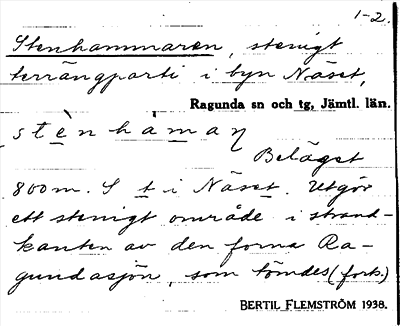 1-2.
Stenhammaren, stenigt
terrängparti i byn Näset,
Ragunda sn och tg, Jämtl. län.
stènhàmaṇ
Beläget
800 m. S t i Näset. Utgör
ett stenigt område i strand-
kanten av den forna Ra-
gundasjön, som tömdes (forts.)
BERTIL FLEMSTRÖM 1938.